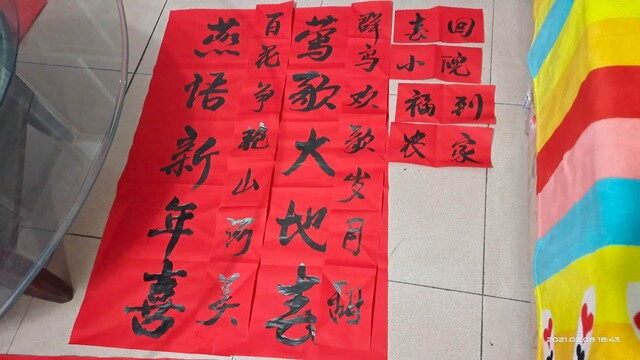 春回
小院
福到
农家
群鸟欢歌岁月甜
莺歌大地春
百花争艳山河美
燕语新年喜
2021.02.08 18:43